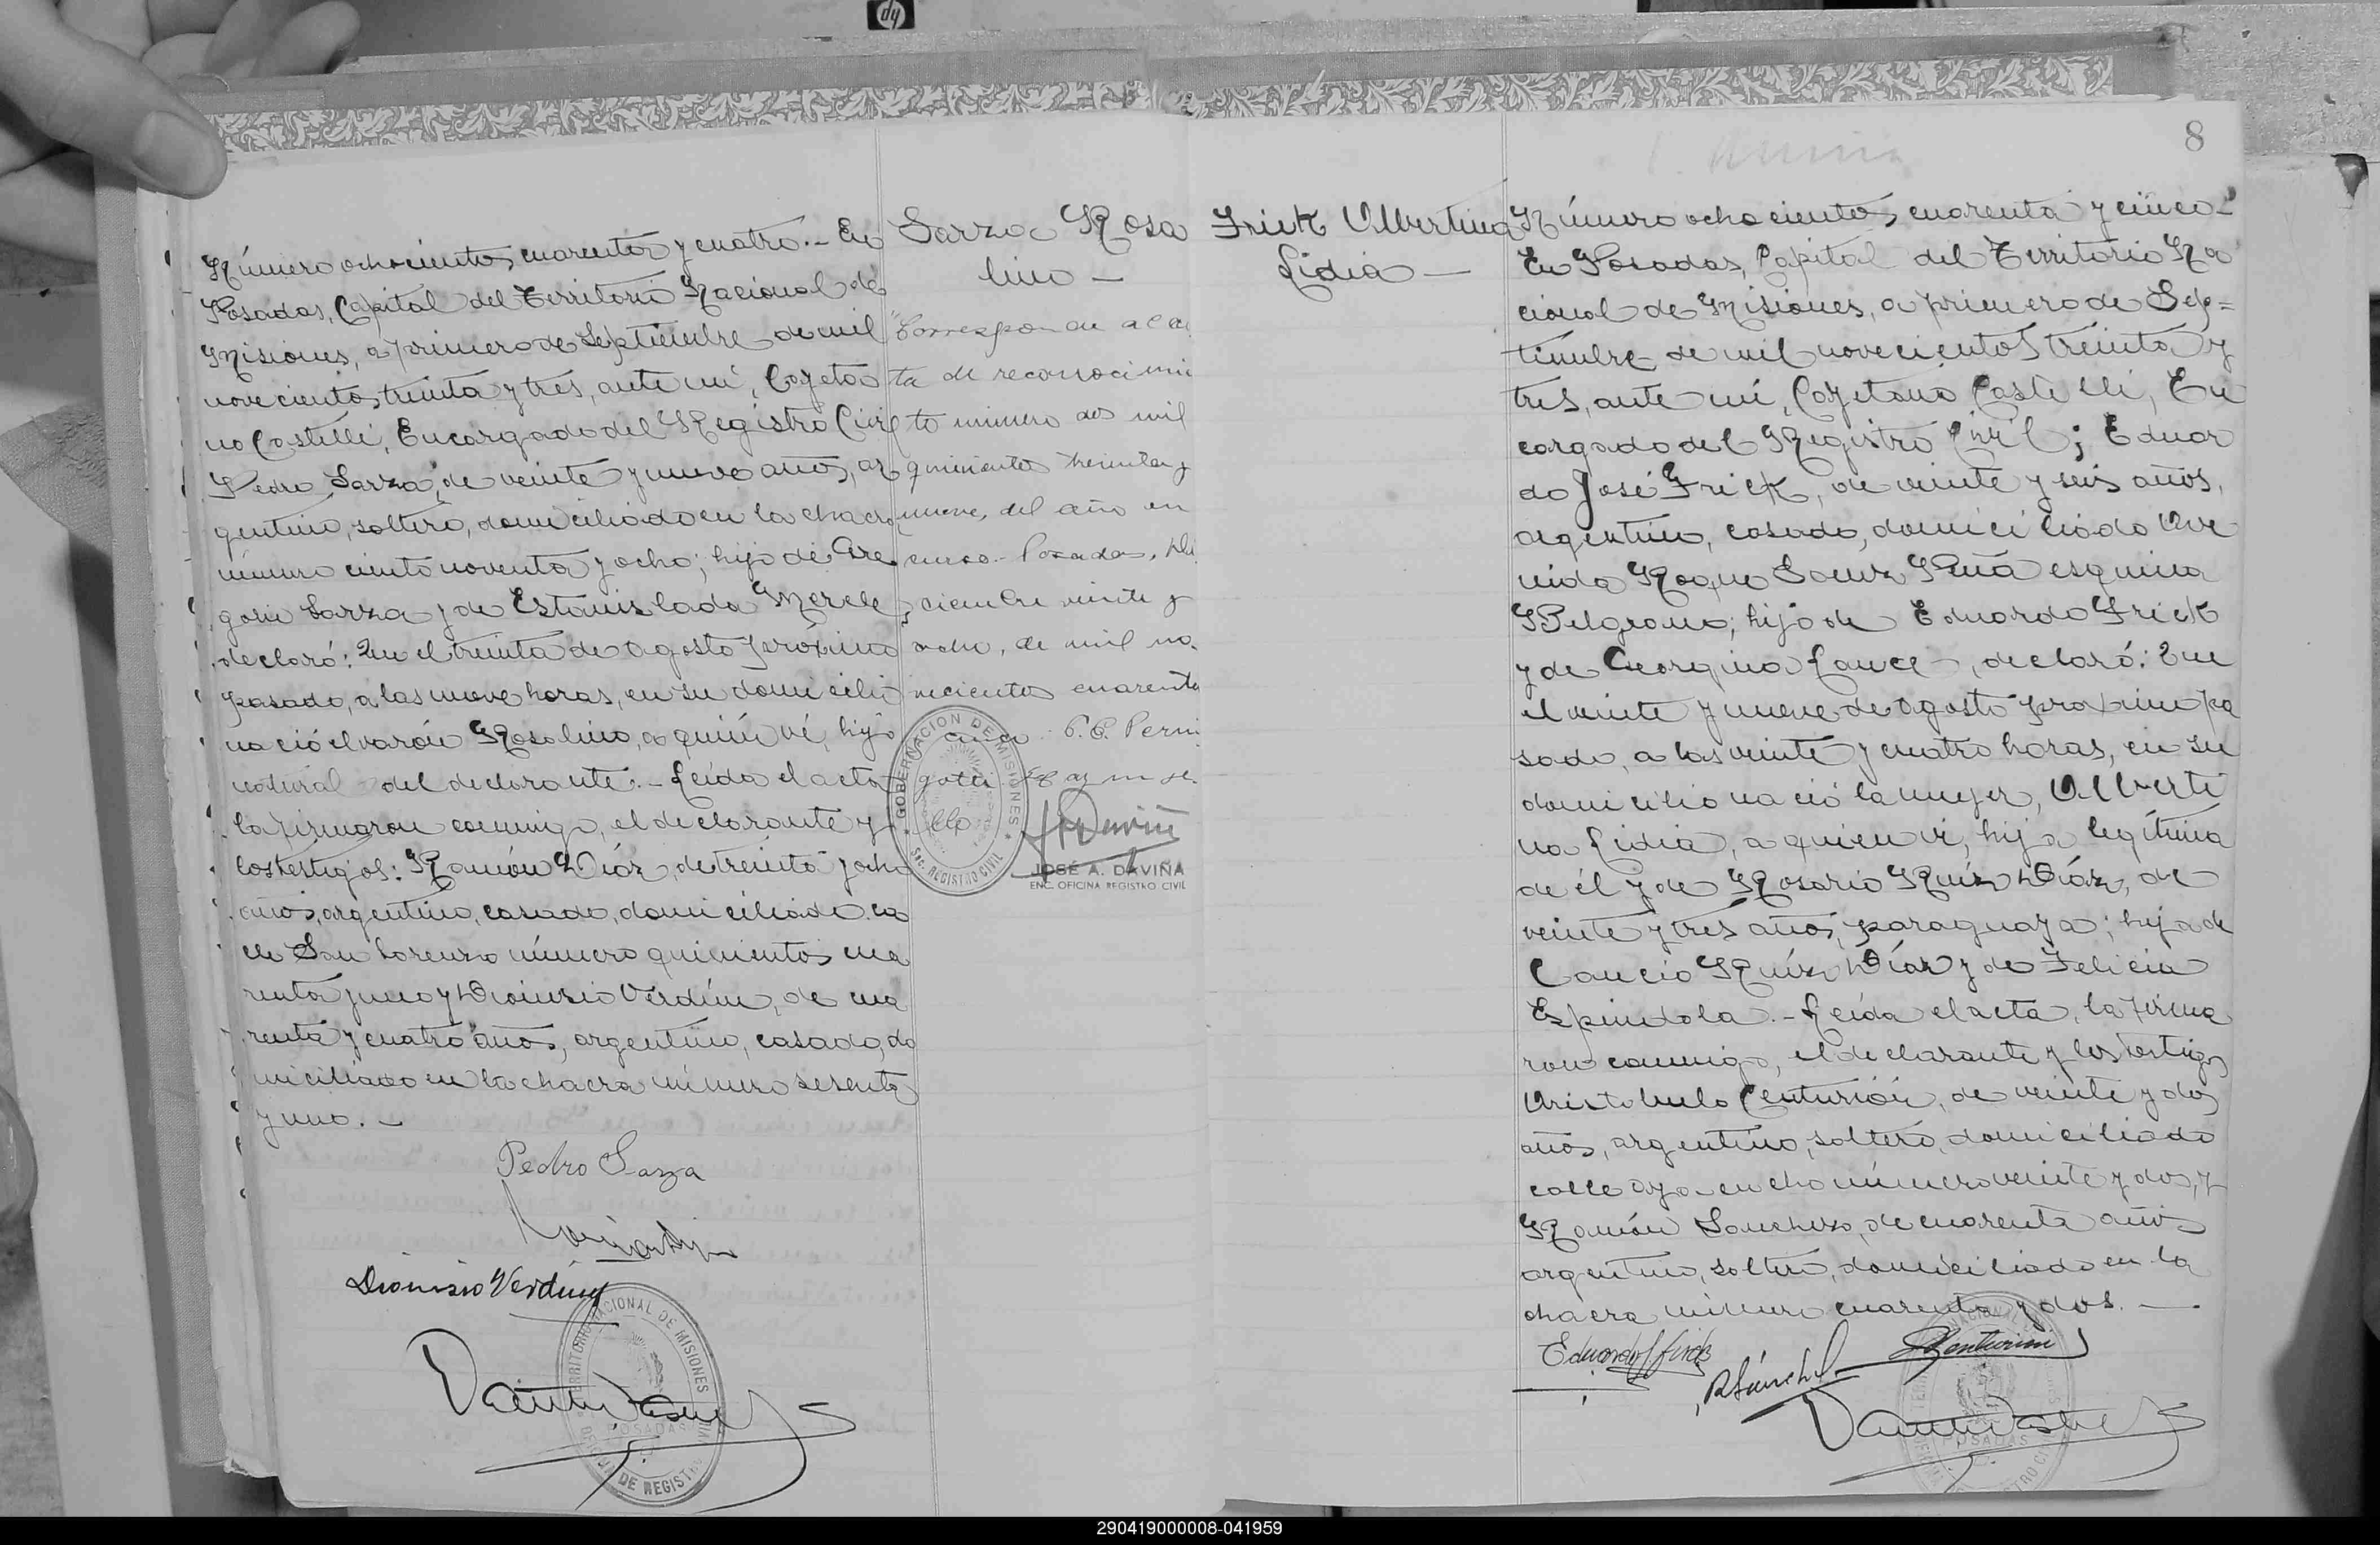 8
Número ochocientos cuarenta y cuatro.- En
Posadas, Capital del Territorio Nacional de
Misiones, a primero de Septiembre de mil
novecientos treinta y tres, ante mí, Cayeta
no Castelli, Encargado del Registro Civil
Pedro Sarza, de veinte y nueve años, ar
gentino, soltero, domiciliado en la chacra
número ciento noventa y ocho; hijo de Gre
gorio Sarza y de Estanislada Merele
declaró: Que el treinta de Agosto próximo
pasado, a las nueve horas, en su domicilio
nació el varón Rosalino, a quién ví, hijo
natural del declarante.- Leída el acta
la firmaron conmigo, el declarante y
los testigos: Ramón Díaz, de treinta y ocho
años, argentino, casado, domiciliado ca
lle San Lorenzo número quinientos cua
renta y uno y Dionisio Verdún, de cua
renta y cuatro años, argentino, casado, do
miciliado en la chacra número sesenta
y uno.-
Pedro Sarza
Dionisio Verdún
TERRITORIO NACIONAL DE MISIONES
POSADAS
Sarza Rosa
lino -
Corresponde al ac
ta de reconocimi
to número dos mil
quinientos treinta y
nueve, del año en
curso.- Posadas, Di
ciembre veinte y
ocho, de mil no
vecientos cuarenta
P. E. Perni
gotti Hay un se
llo
GOBERNACION DE MISIONES
Sec. REGISTRO CIVIL
JOSÉ A. DAVIÑA
ENC. OFICINA REGISTRO CIVIL
Frick Albertina
Lidia -
Número ochocientos cuarenta y cinco-
En Posadas, Capital del Territorio Na
cional de Misiones, a primero de Sep=
tiembre de mil novecientos treinta y
tres, ante mí, Cayetano Castelli, En
cargado del Registro Civil; Eduar
do José Frick, de veinte y seis años,
argentino, casado, domiciliado Ave
nida Roque Saenz Peña esquina
Belgrano; hijo de Eduardo Frick
y de Georgina Lance, declaró: Que
el veinte y nueve de Agosto próximo pa
sado, a las veinte y cuatro horas, en su
domicilio nació la mujer, Alberti
na Lidia, a quien ví, hija legítima
de él y de Rosario Ruíz Díaz, de
veinte y tres años, paraguaya; hija de
Cancio Ruíz Díaz y de Felicia
Espindola.- Leída el acta, la firma
ron conmigo, el declarante y los testigos
Aristobulo Centurión, de veinte y dos
años, argentino, soltero, domiciliado
calle Ayacucho número veinte y dos, y
Ramón Sanchez, de cuarenta años
argentino, soltero, domiciliado en la
chacra número cuarenta y dos.-
Eduardo J Frick
R Sánchez
POSADAS
290419000008-041959